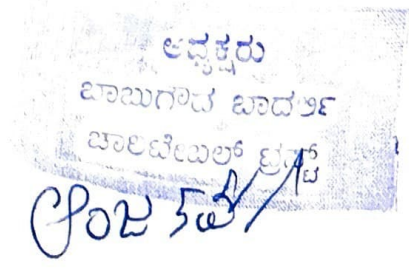 ಅಧ್ಯಕ್ಷರು
ಬಾಬುಗೌಡ ಬಾದರ್ಲಿ
ಚಾರಿಟೇಬಲ್ ಟ್ರಸ್ಟ್